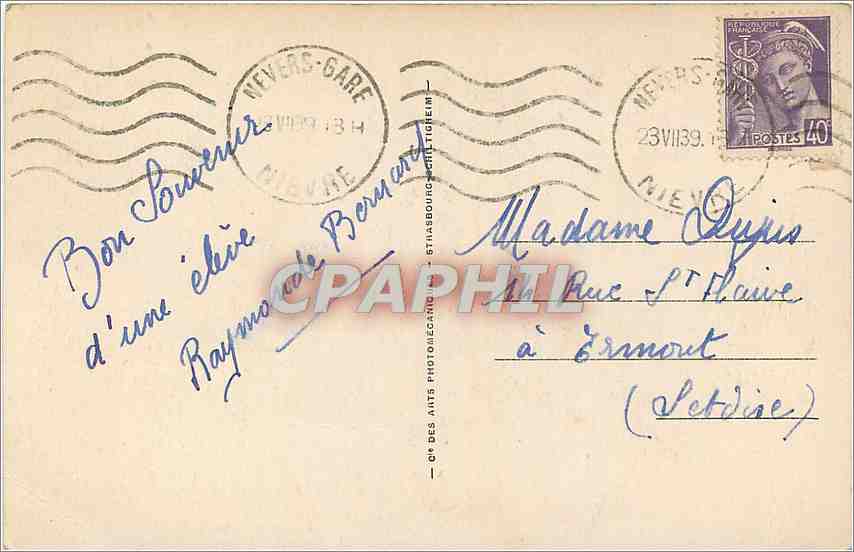 NEVERS-GARE
23 VII 39. 18 H
NIEVRE
NEVERS-GARE
23 VII 39.
NIEVRE
REPUBLIQUE
FRANÇAISE
POSTES
40
Bon Souvenir
d'une élève
Raymonde Bernard
— Cie DES ARTS PHOTOMÉCANIQUES - STRASBOURG-SCHILTIGHEIM —
CPAPHIL
Madame Dupis
Rue St Flaive
à Ermont
(Set Oise)